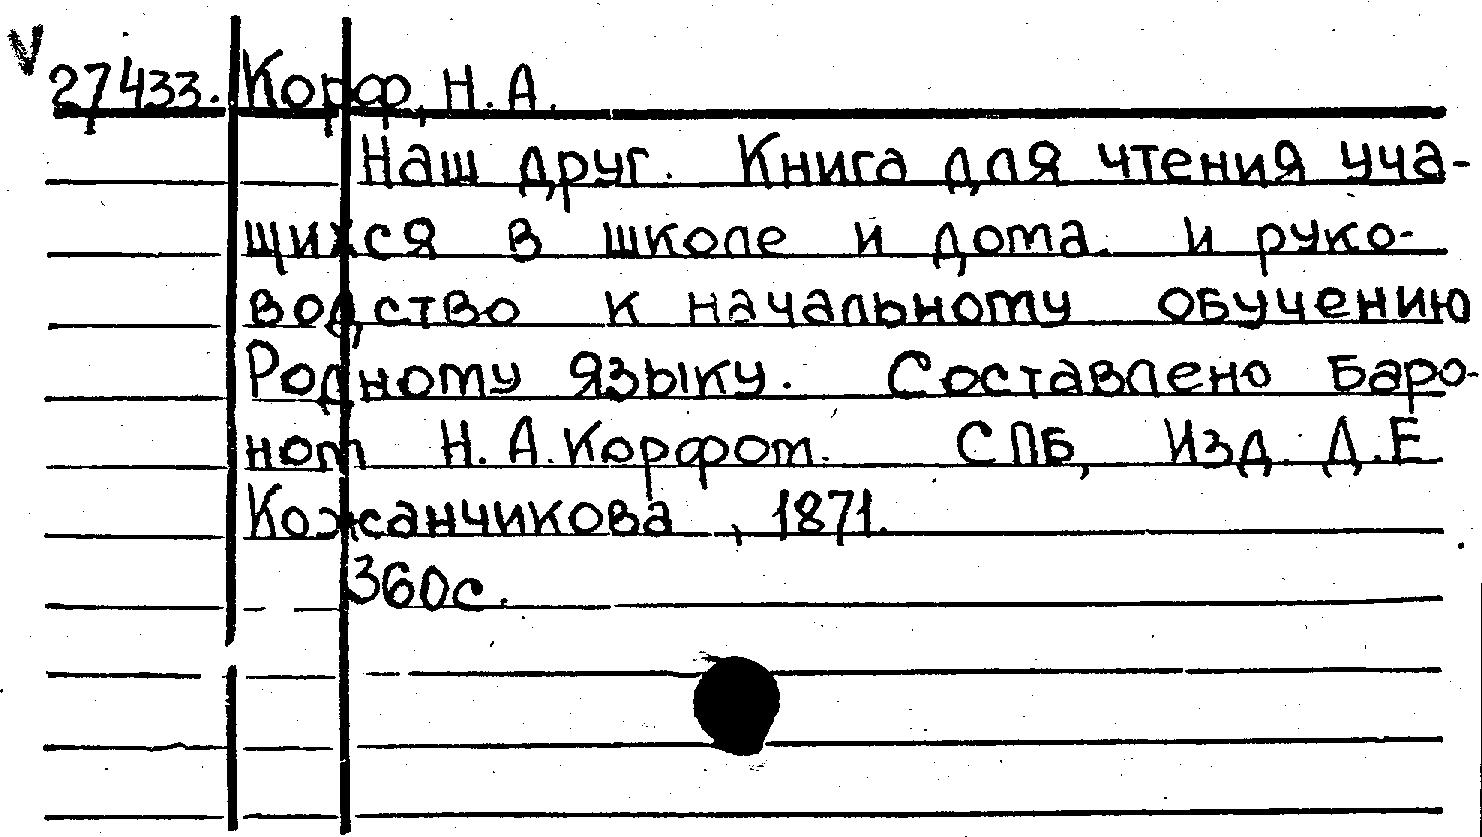 V 27433. Корф, Н. А.
Наш друг. Книга для чтения уча-
щихся в школе и дома. и руко-
водство к начальному обучению
Родному языку. Составлено Баро-
ном Н. А. Корфом. СПБ, Изд. Д. Е
Кожанчикова, 1871.
360с.